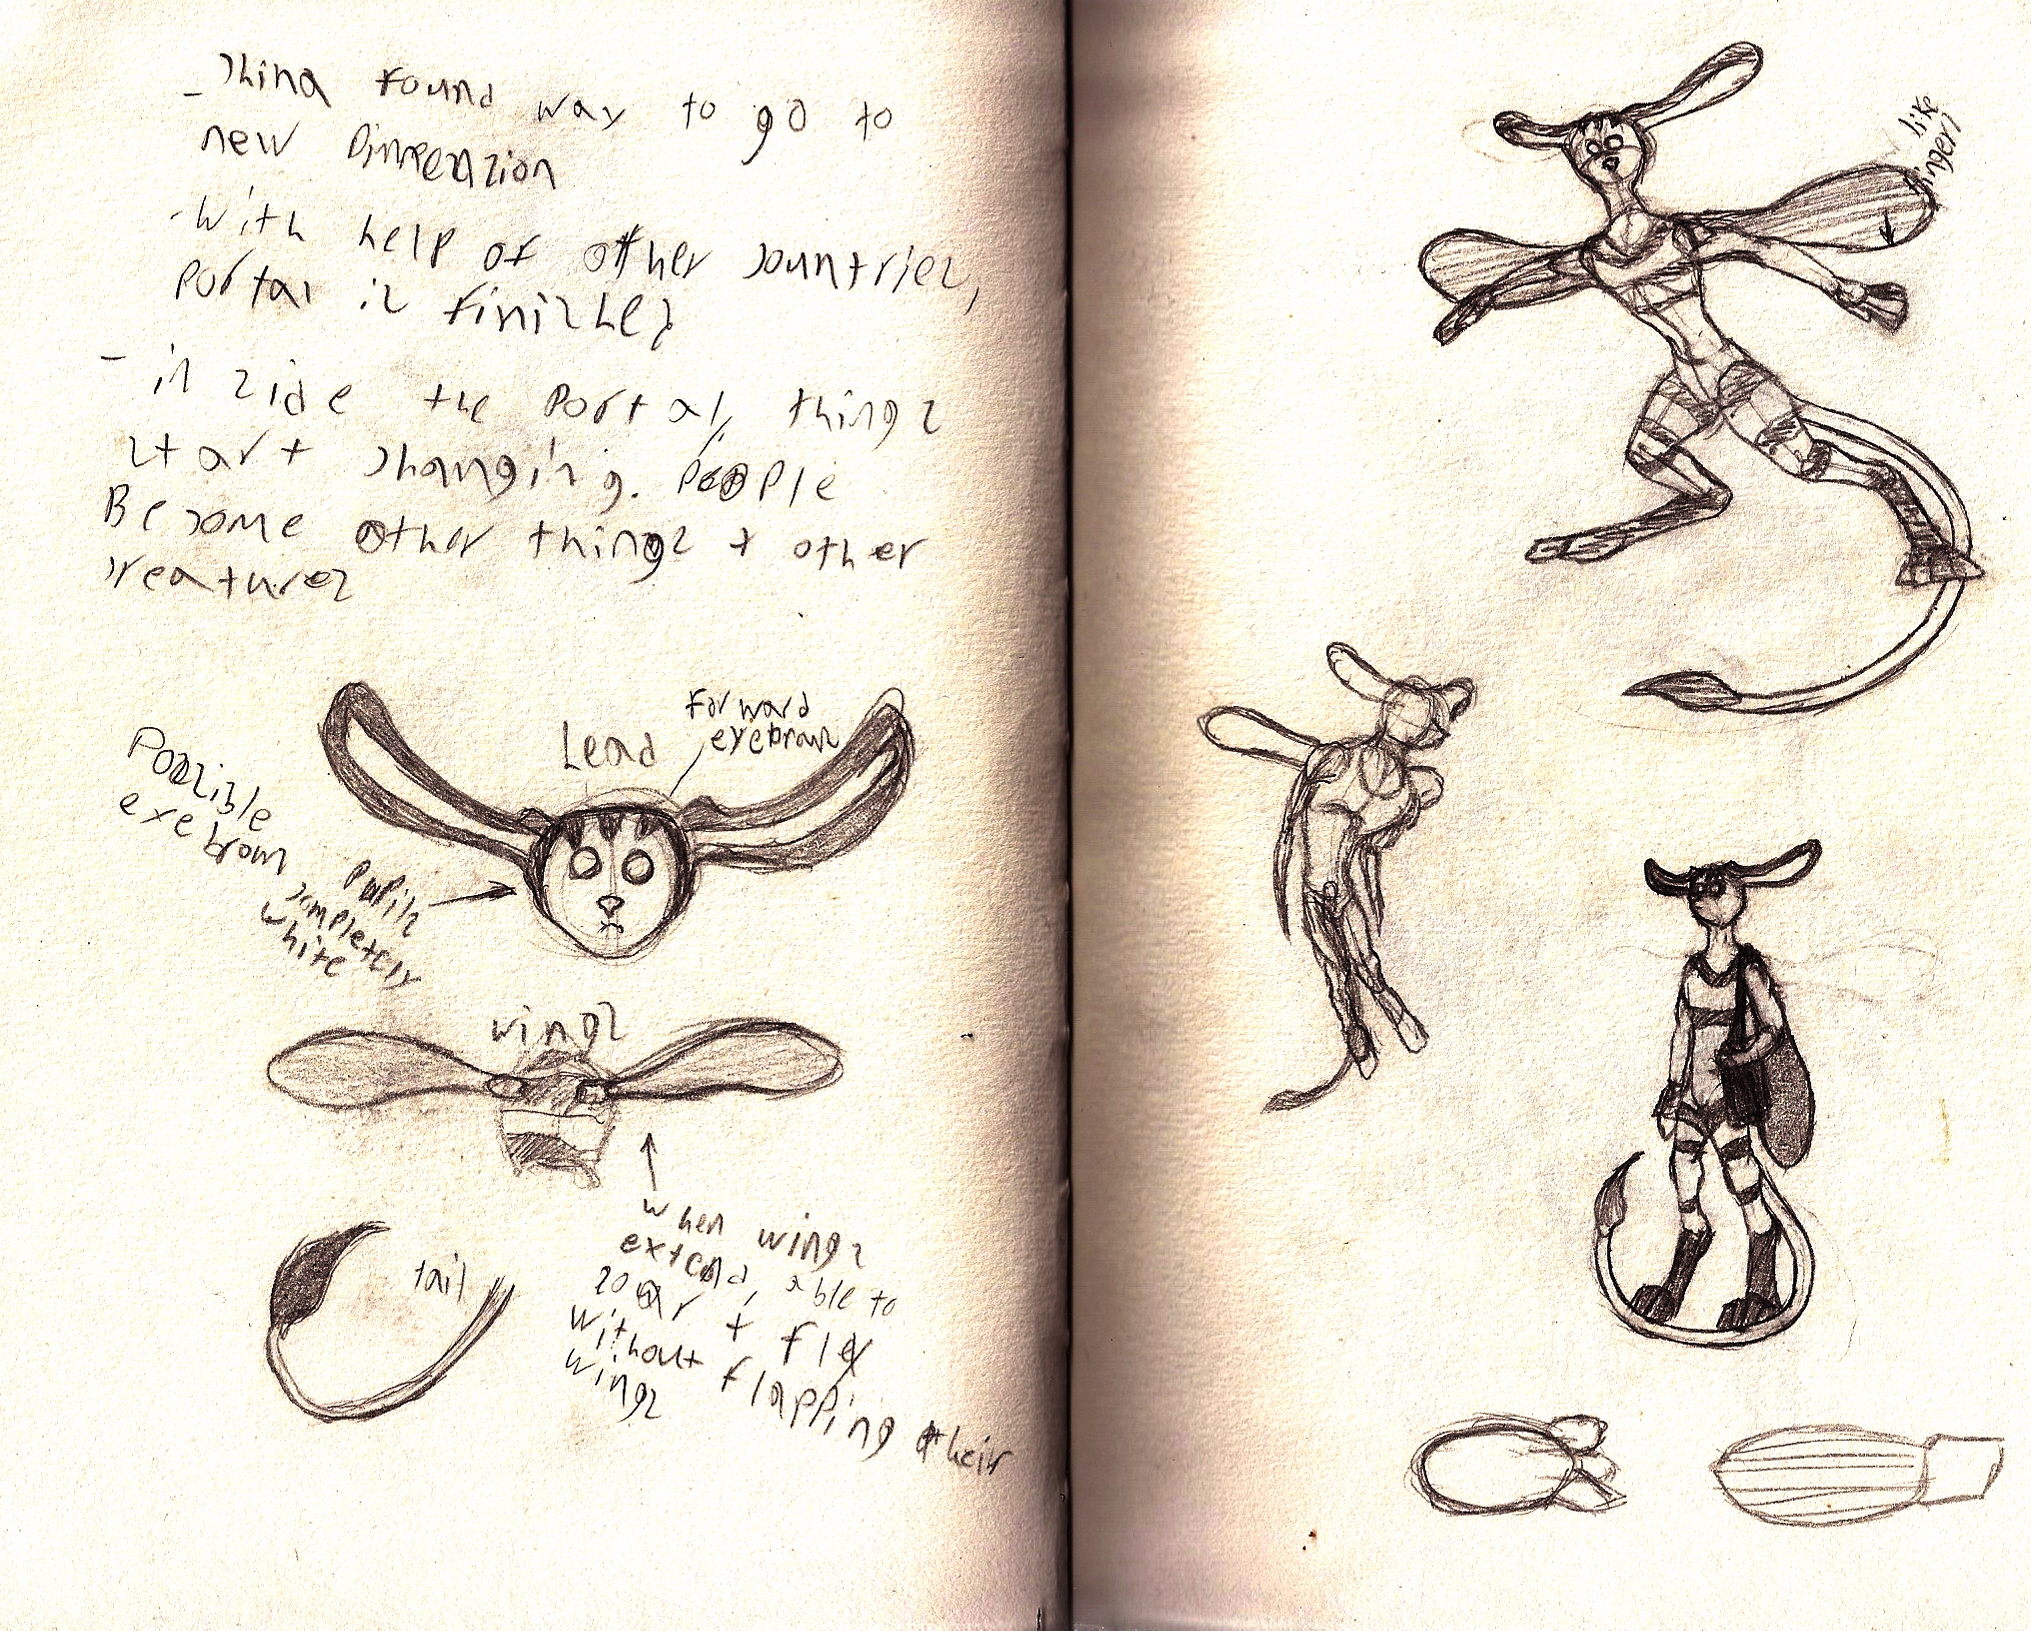 - China found way to go to
new Dimension
- With help of other countries,
Portal is finished
- inside the Portal, things
start changing. People
Become other things + other
creatures
Lead
Forward
eyebrows
Possible
eyebrows
Pupils
completely
white
wings
when wings
extend, able to
soar + fly
without flapping their
wings
tail
like
fingers